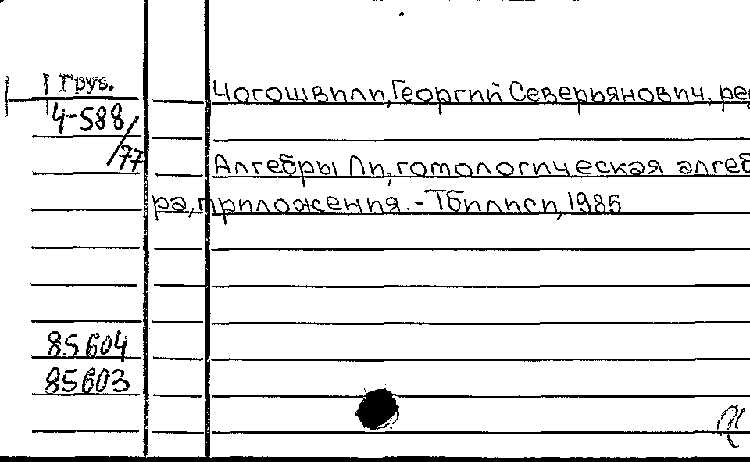 Груз.
Чогошвили, Георгий Северьянович, ре
4-588
/77
Алгебры Ли, гомологическая алгеб
ра, приложения. - Тбилиси, 1985
85604
85603